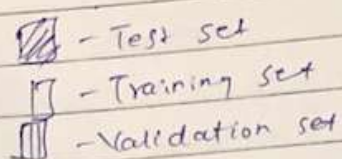 - Test set
- Training set
- Validation set